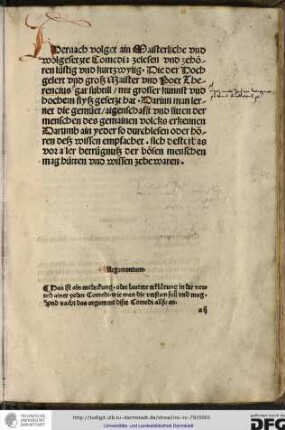 Hernach volget ain Maisterliche vnd
wolgesetzte Comedia zelesen vnd zehö-
ren lüstig vnd kurtzwylig. Die der Hoch
gelert vnd groß Maister vnd Poet The
rencius gar subtill / mit grosser kunst vnd
hochem flyß gesetzt hat. Darinn man ler-
net die gemüet / aigenschafft vnd sitten der
menschen des gemainen volcks erkennen
Darumb ain yeder so durchlesen oder hö-
ren deß wissen empfachet. sich dester bas
vor aller betrügnuß der bösen menschen
mag hütten vnd wissen zebewaren.
Argumentum
Das ist ain endeckung oder lautere erklärung in der vor
red ainer yeden Comedi wie man die versten soll vnd mag
Vnd vacht das argument diser Comedi also an.
a ij
http://tudigit.ulb.tu-darmstadt.de/show/inc-iv-79/0001
Universitäts- und Landesbibliothek Darmstadt
TECHNISCHE UNIVERSITÄT DARMSTADT
gefördert durch
DFG